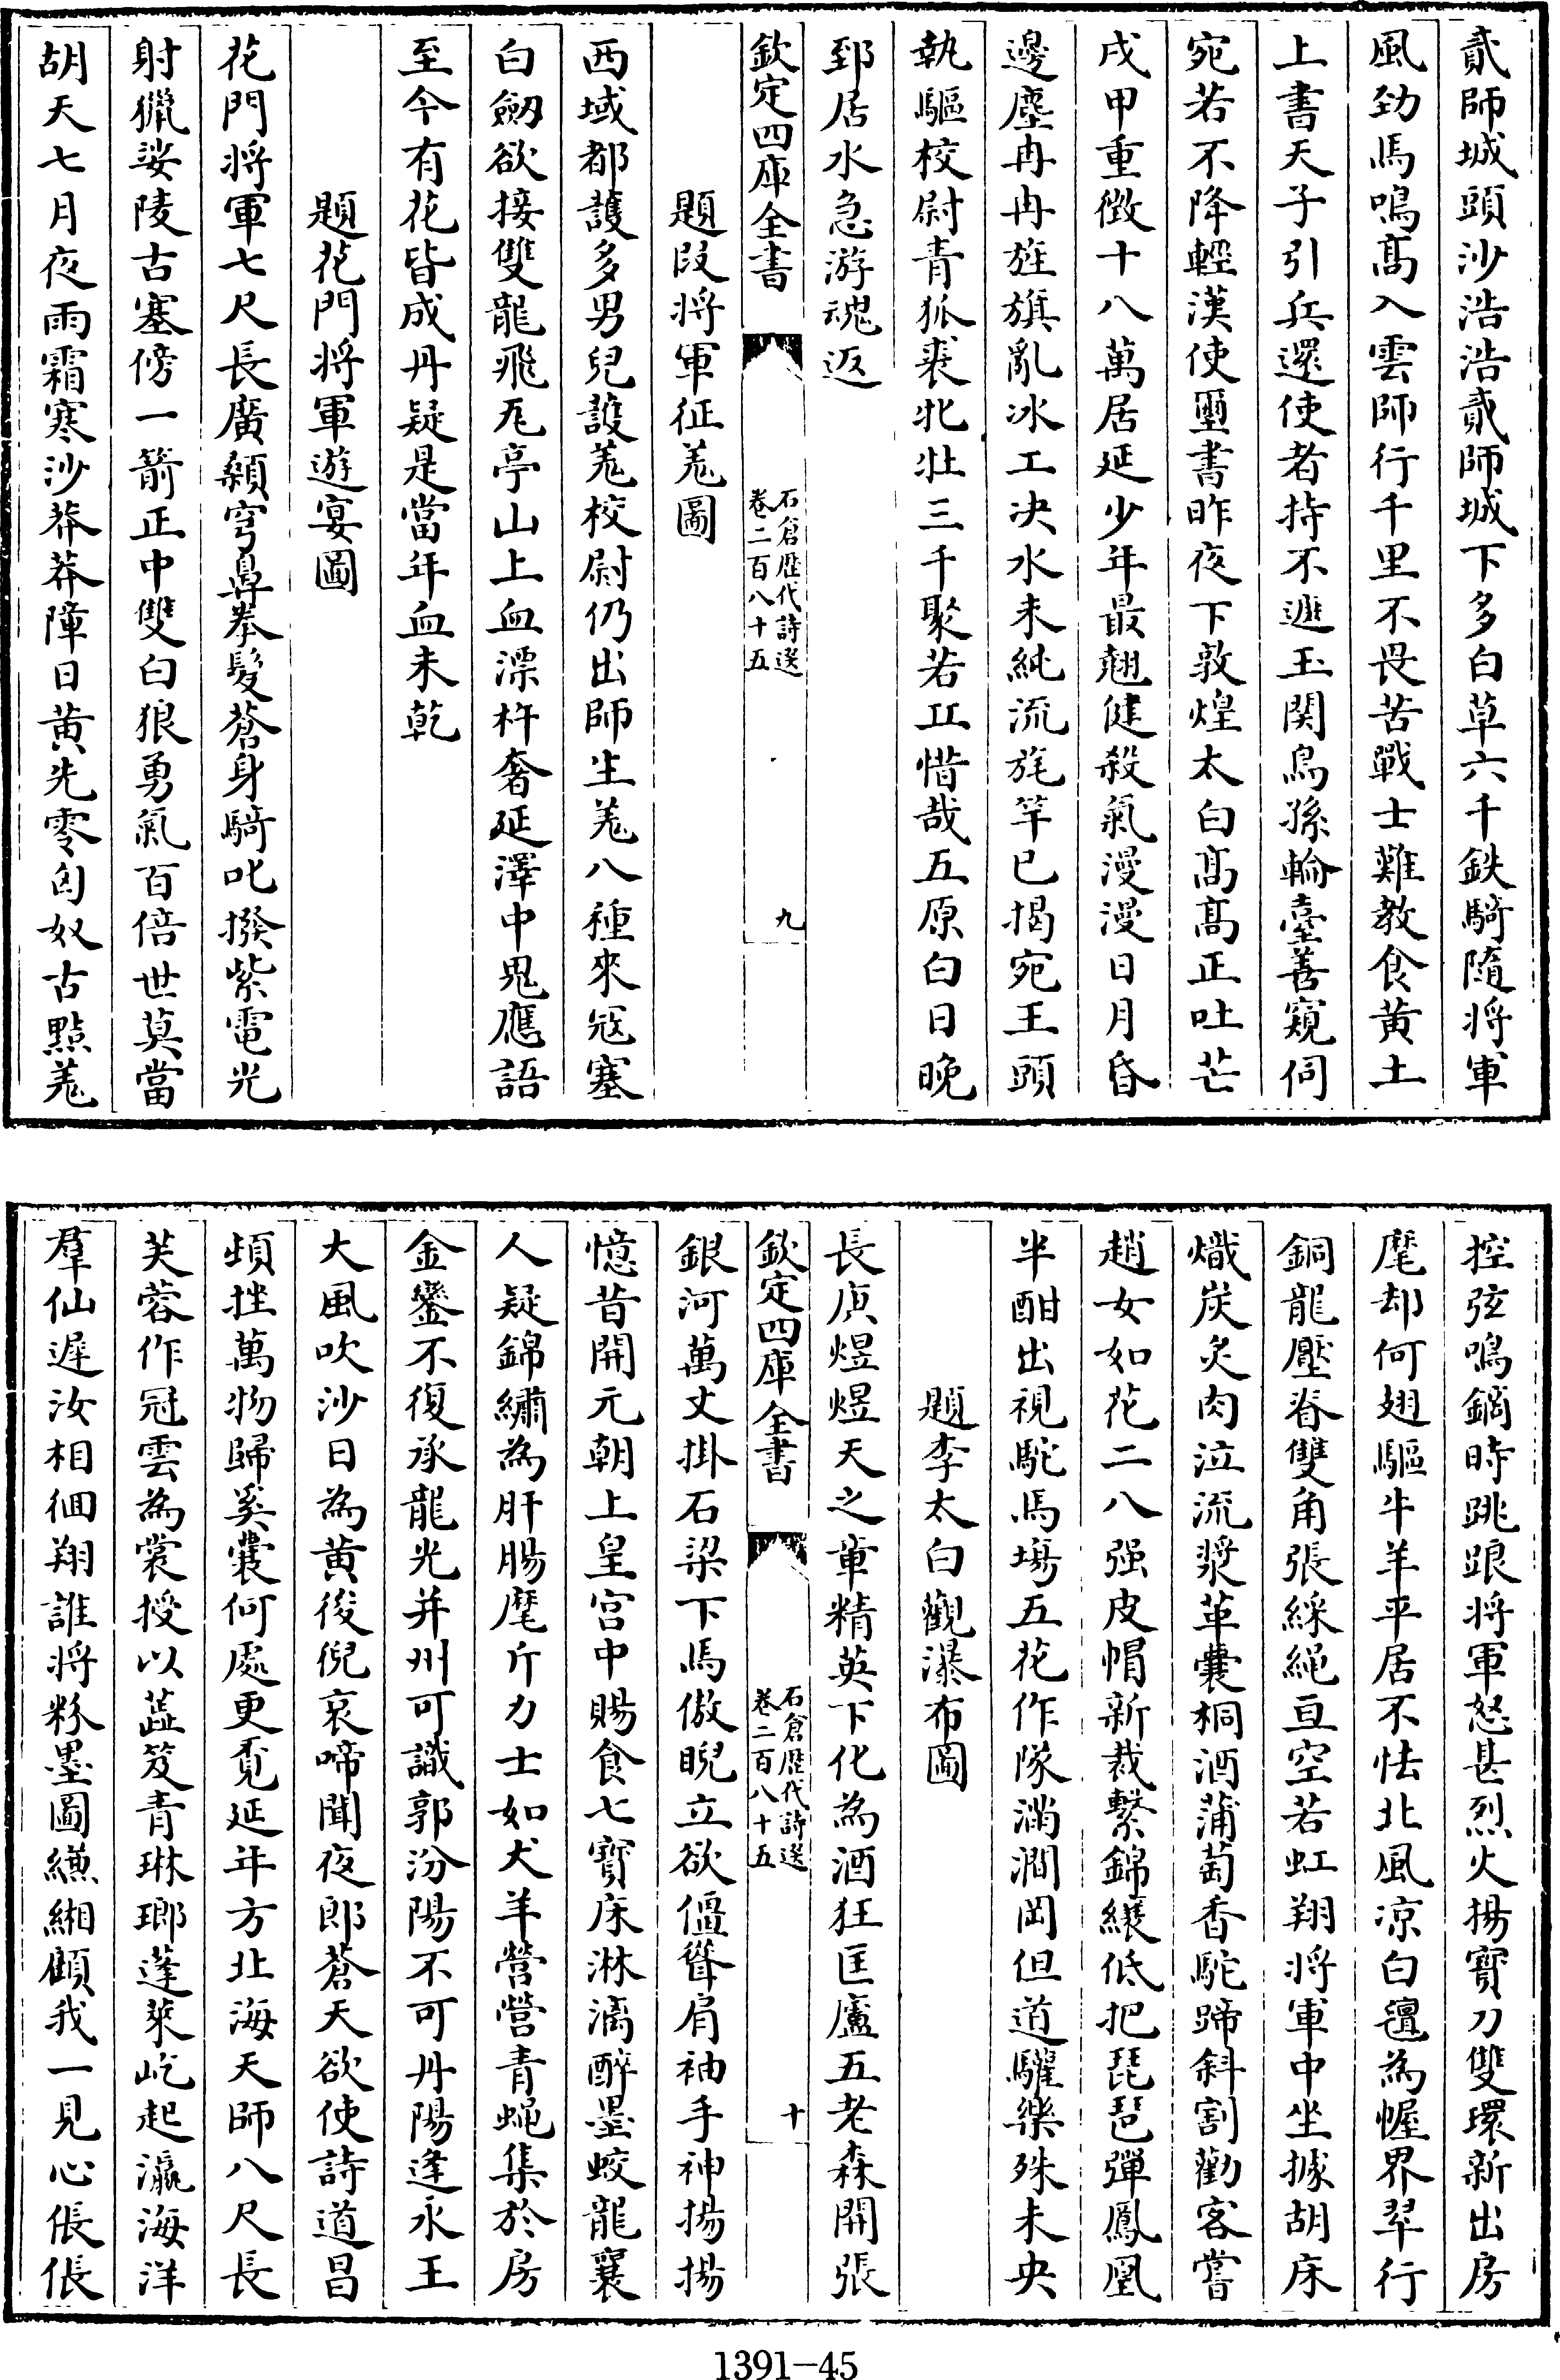 貳師城頭沙浩浩貳師城下多白草六千鉄騎隨将軍
風勁馬鳴髙入雲師行千里不畏苦戰士難教食黄土
上書天子引兵還使者持不遮玉関烏孫輪臺善窺伺
宛若不降輕漢使璽書昨夜下敦煌太白髙髙正吐芒
戍甲重徴十八萬居延少年最翹健殺氣漫漫日月昏
邊塵冉冉旌旗亂冰工决水未純流旄竿已揭宛王頭
執驅校尉青狐裘牝牡三千聚若丘惜哉五原白日晚
郅居水急游魂返
欽定四庫全書
石倉歴代詩選
卷二百八十五
九
題段将軍征羌圖
西域都護多男兒護羌校尉仍出師生羌八種來寇塞
白劒欲接雙龍飛瓦亭山上血漂杵奢延澤中鬼應語
至今有花皆成丹疑是當年血未乾
題花門将軍遊宴圖
花門将軍七尺長廣顙穹鼻拳髮蒼身騎叱撥紫電光
射獵娑陵古塞傍一箭正中雙白狼勇氣百倍世莫當
胡天七月夜雨霜寒沙莽莽障日黄先零匈奴古點羌
控弦鳴鏑時跳踉将軍怒甚烈火揚寳刀雙環新出房
麾却何翅驅牛羊平居不怯北風凉白氊為幄界翠行
銅龍壓脊雙角張綵繩亘空若虹翔将軍中坐據胡床
熾炭炙肉泣流漿革囊桐酒蒲萄香駝蹄斜割勸客嘗
趙女如花二八强皮帽新裁繫錦纕低把琵琶彈鳳凰
半酣出視駝馬場五花作隊滿澗岡但道驩樂殊未央
題李太白觀瀑布圖
長庚煜煜天之章精英下化為酒狂匡廬五老森開張
欽定四庫全書
石倉歴代詩選
卷二百八十五
十
銀河萬丈掛石梁下馬傲睨立欲僵聳肩袖手神揚揚
憶昔開元朝上皇宫中賜食七寳床淋漓醉墨蛟龍襄
人疑錦繡為肝腸麾斤力士如犬羊營營青蝇集於房
金鑾不復承龍光并州可識郭汾陽不可丹陽逢永王
大風吹沙日為黄後倪哀啼聞夜郎蒼天欲使詩道昌
頓挫萬物歸奚囊何處更覔延年方北海天師八尺長
芙蓉作冠雲為裳授以蕋笈青琳瑯蓬萊屹起瀛海洋
羣仙遲汝相徊翔誰将粉墨圖縑緗顧我一見心倀倀
1391-45